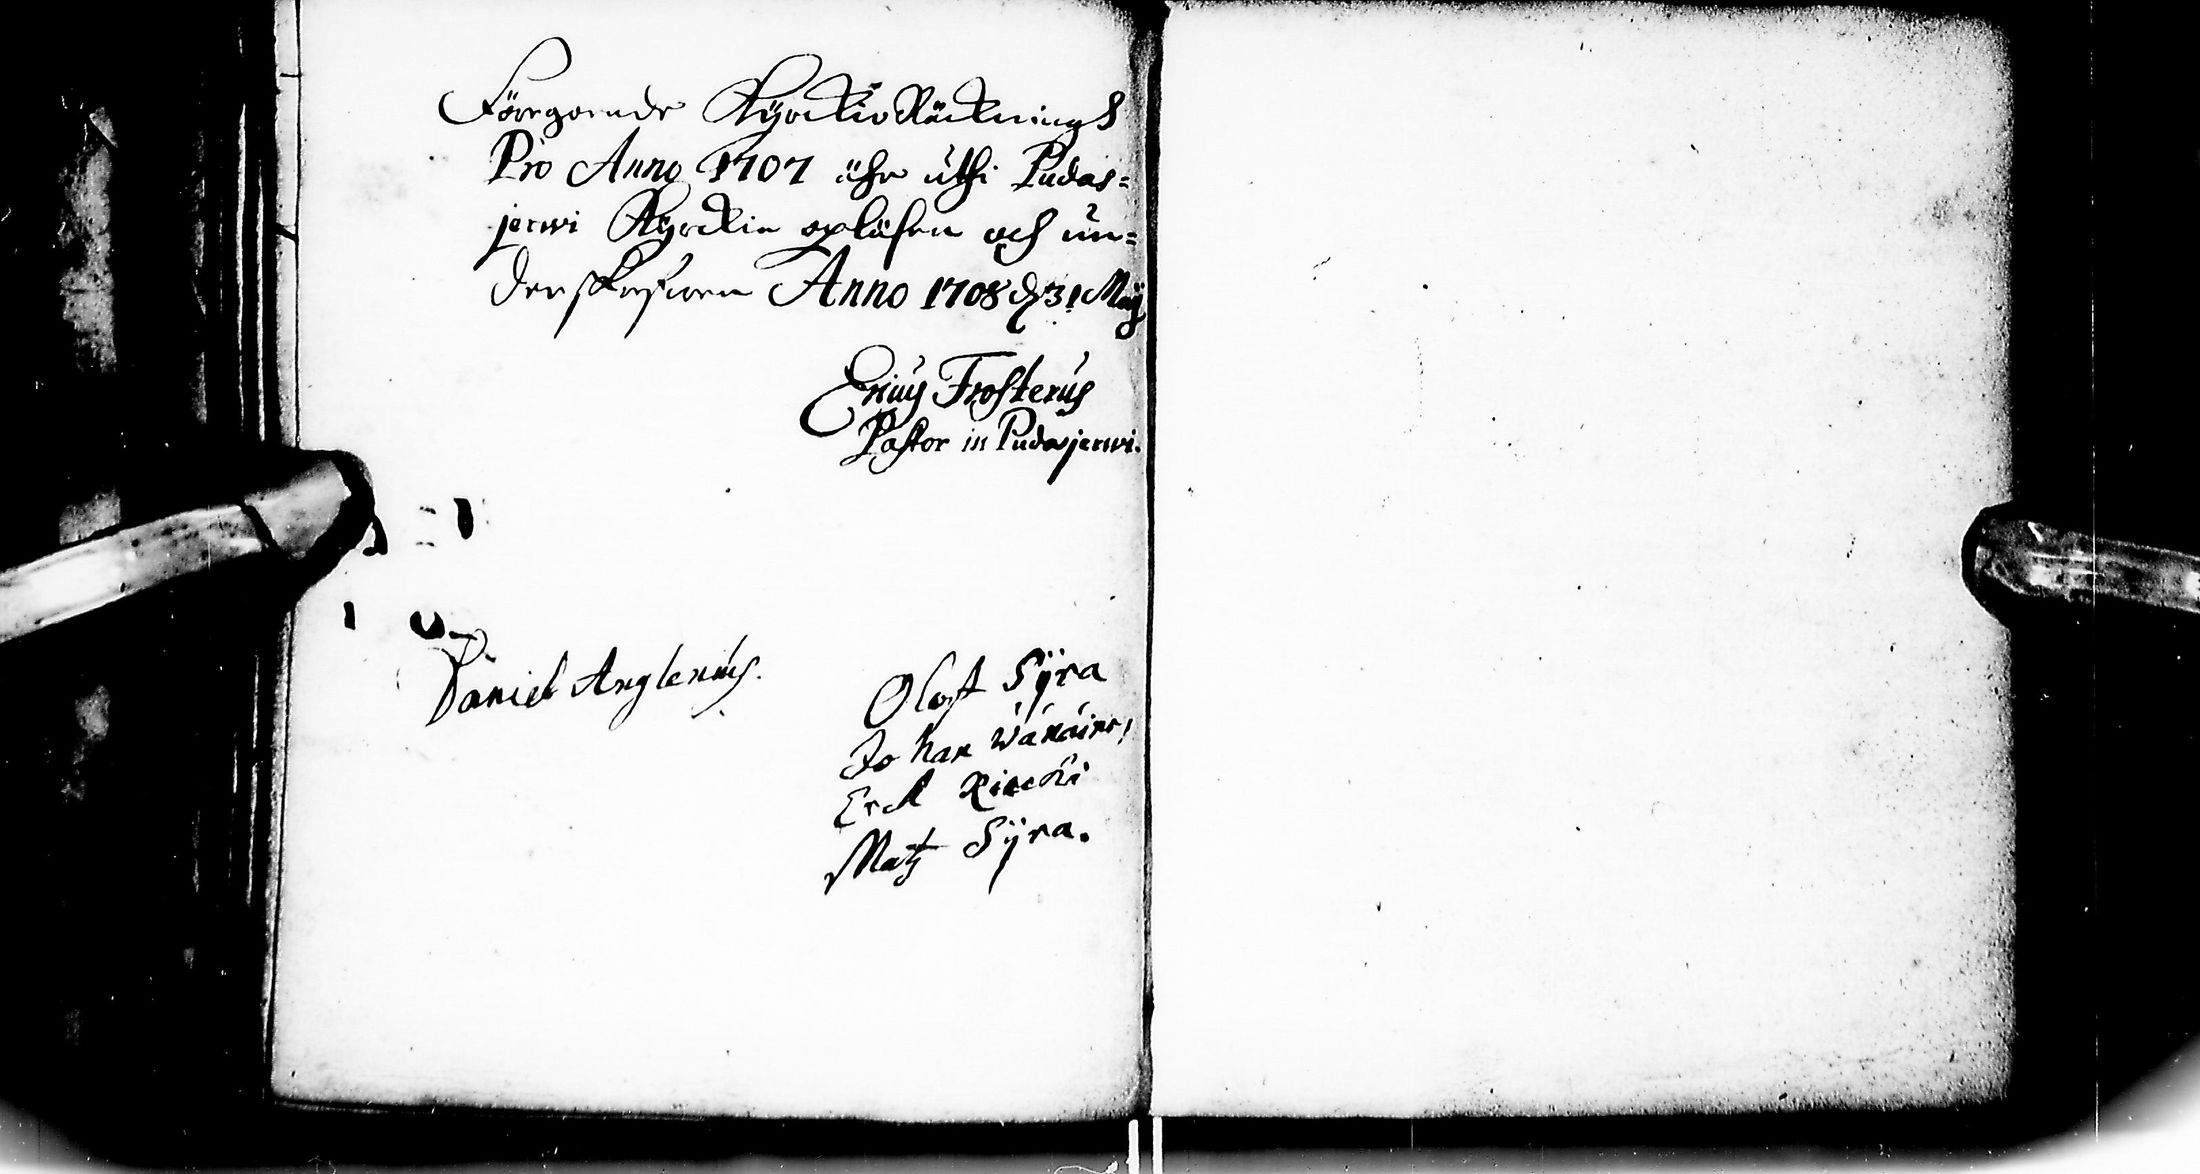 Föregaende Kyrckio Räcknings
Pro Anno 1707 ähr uthi Pudas=
jerwi Kyrckia opläsen och un=
derskrefwen Anno 1708 d. 31 Maij
Ericus Frosterus
Pastor in Pudasjerwi.
Daniel Anglenius.
Oloff Sÿra
Johan
Erck
Matz Sÿra.